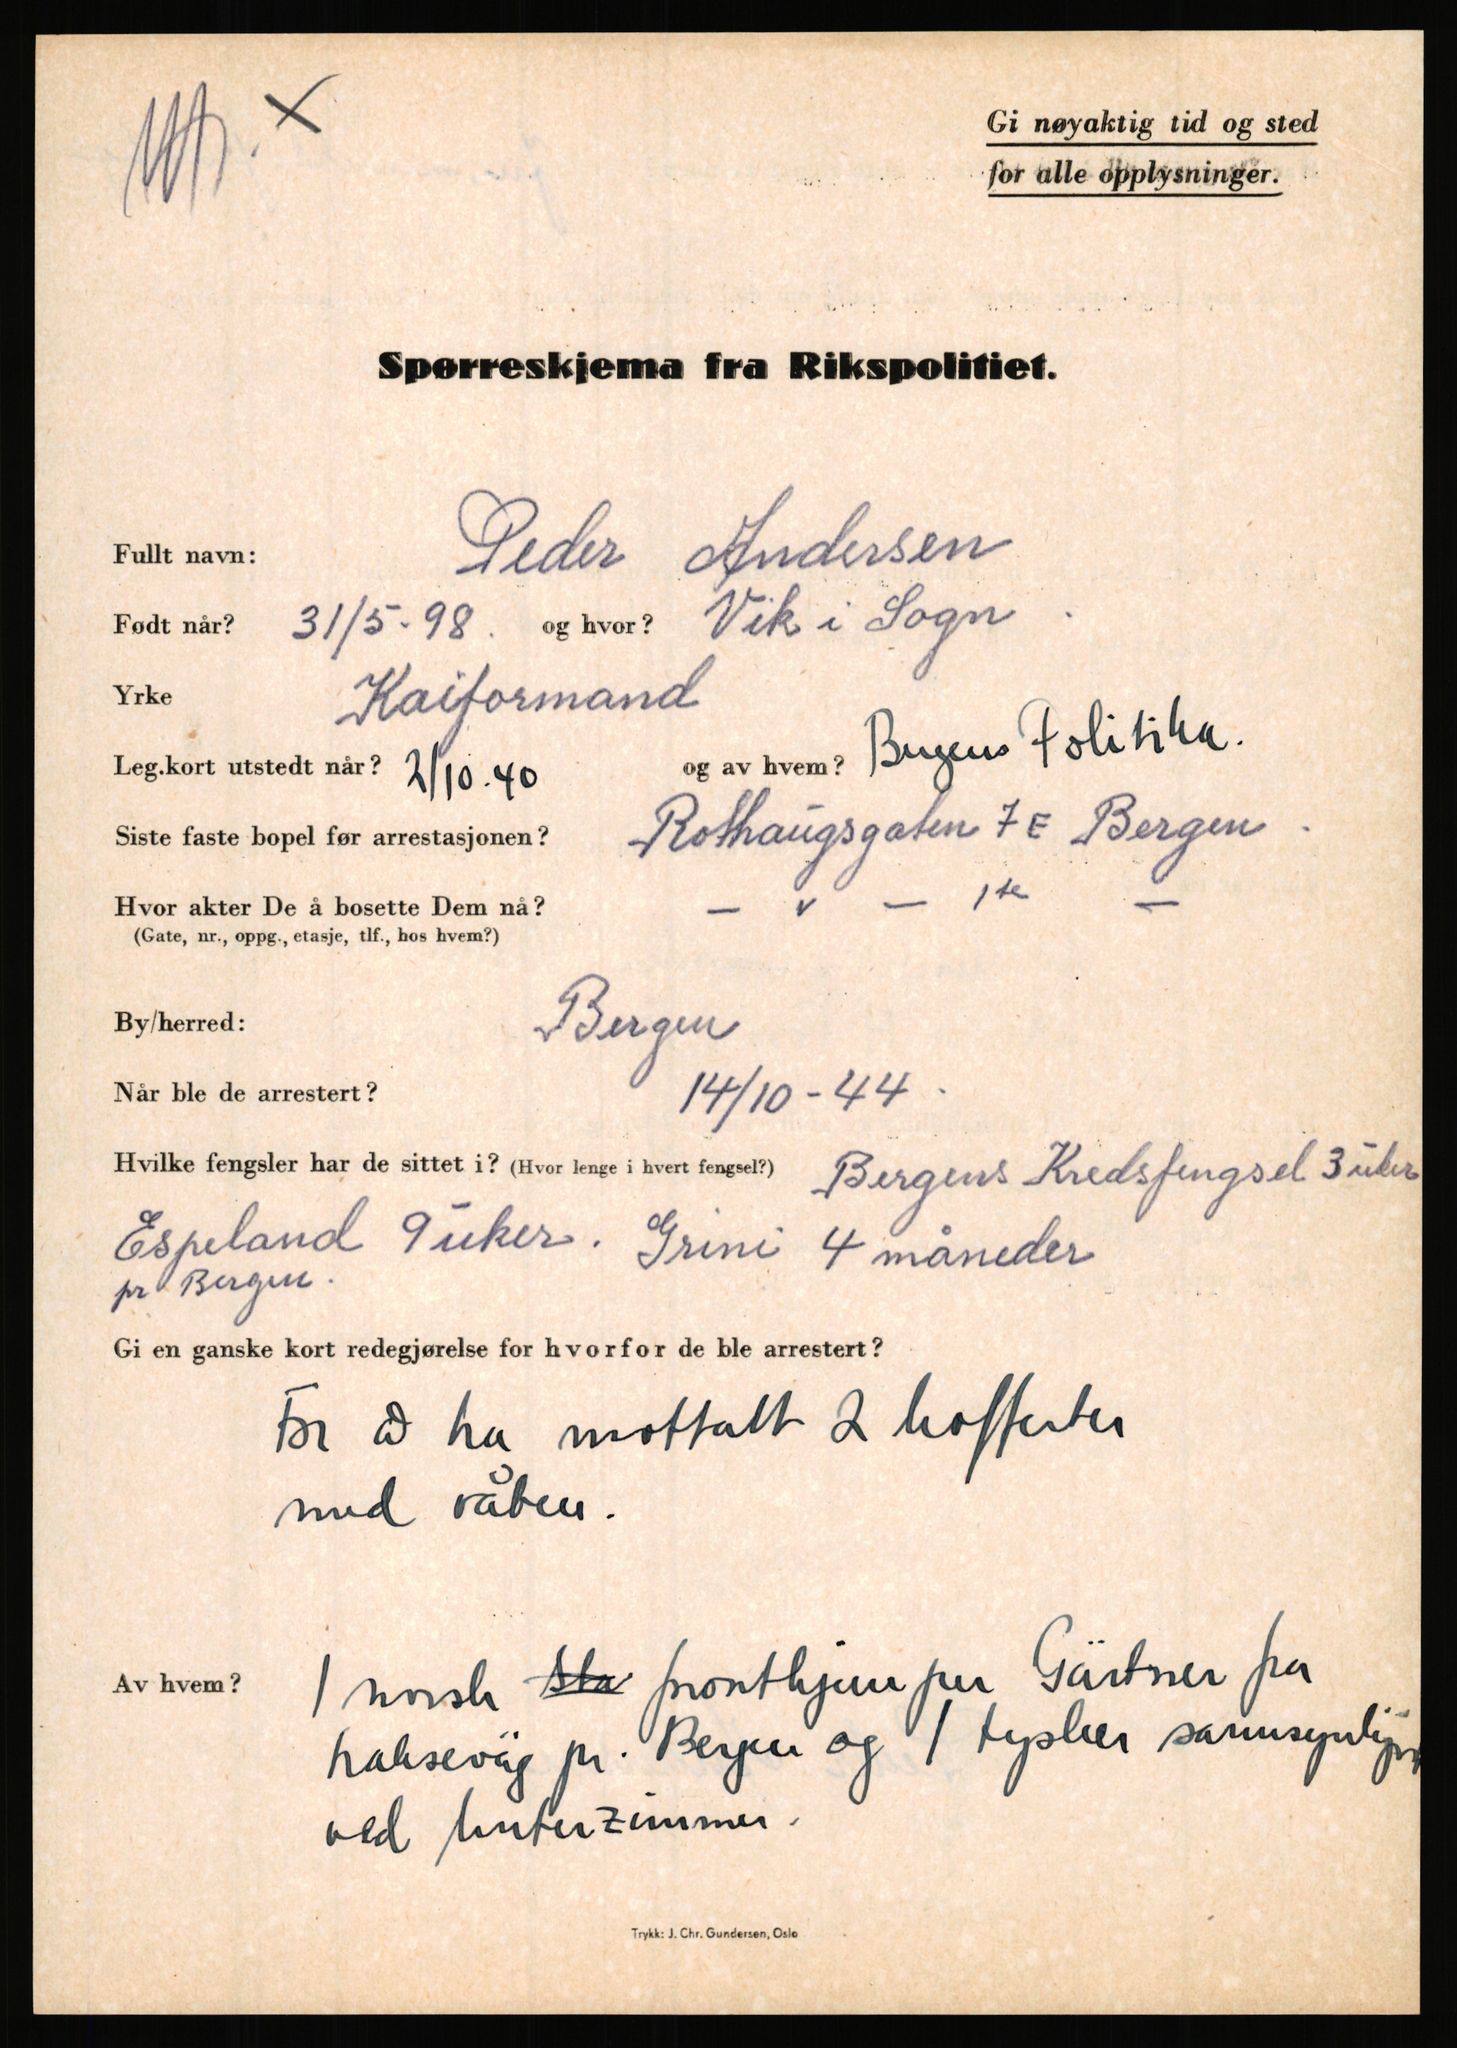 Gi nøyaktig tid og sted
for alle opplysninger.
Spørreskjema fra Rikspolitiet.
Fullt navn: Peder Andersen
Født når? 31/5-98. og hvor? Vik i Sogn
Yrke Kaiformand
Leg.kort utstedt når? 2/10.40 og av hvem? Bergens Politika.
Siste faste bopel før arrestasjonen? Rothaugsgaten 7E Bergen.
Hvor akter De å bosette Dem nå? — v — 1te —
(Gate, nr., oppg., etasje, tlf., hos hvem?)
By/herred: Bergen
Når ble de arrestert? 14/10-44.
Hvilke fengsler har de sittet i? (Hvor lenge i hvert fengsel?) Bergens Kredsfengsel 3 uker
Espeland 9 uker. Grini 4 måneder
pr Bergen.
Gi en ganske kort redegjørelse for hvorfor de ble arrestert?
For å ha mottatt 2 kofferter
med våben.
Av hvem? 1 norsk sta frontkjemper Gärtner fra
pr. Bergen og 1 tysker sannsynligvis
ved
Trykk: J. Chr. Gundersen, Oslo